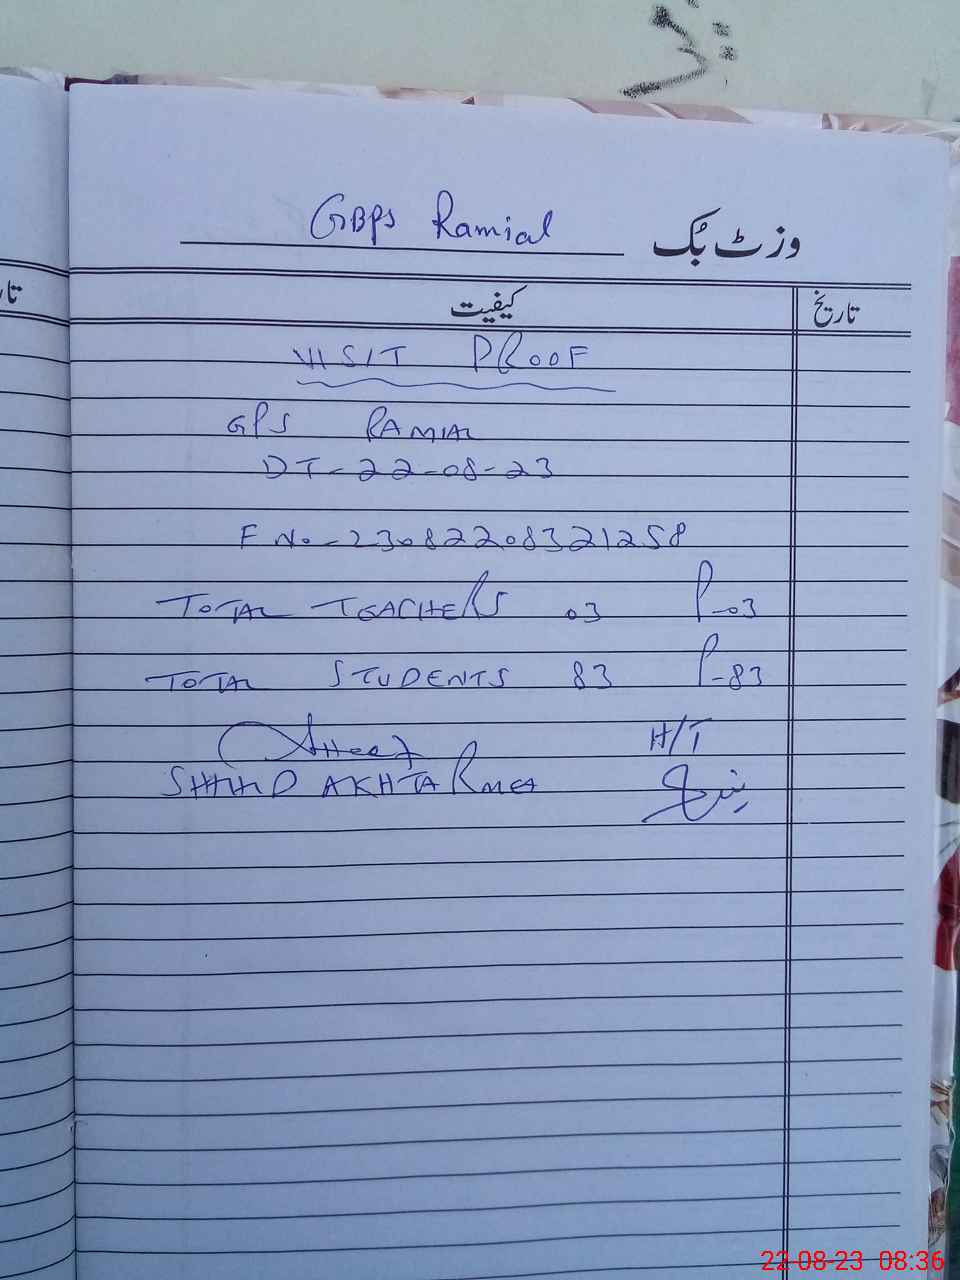 GBPS Ramial وزٹ بُک
کیفیت تاریخ
VISIT PROOF
GPS RAMIAL
DT-22-08-23
F No-23082208321258
TOTAL TEACHERS 03 P-03
TOTAL STUDENTS 83 P-83
H/T
SHAHID AKHTAR MEA
22-08-23 08:36